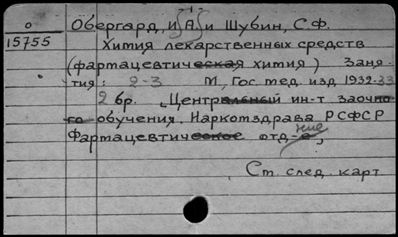 о Обергард, И. А. и Шубин, С.Ф.
15755 Химия лекарственных средств
(фармацевтическая химия) Заня-
тия: 2-3 М, Гос. мед. изд 1932-33
2 бр. „Центральный ин-т заочно-
го обучения. Наркомздрава РСФСР
Фармацевтическое отд-ние,
Ст. след. карт